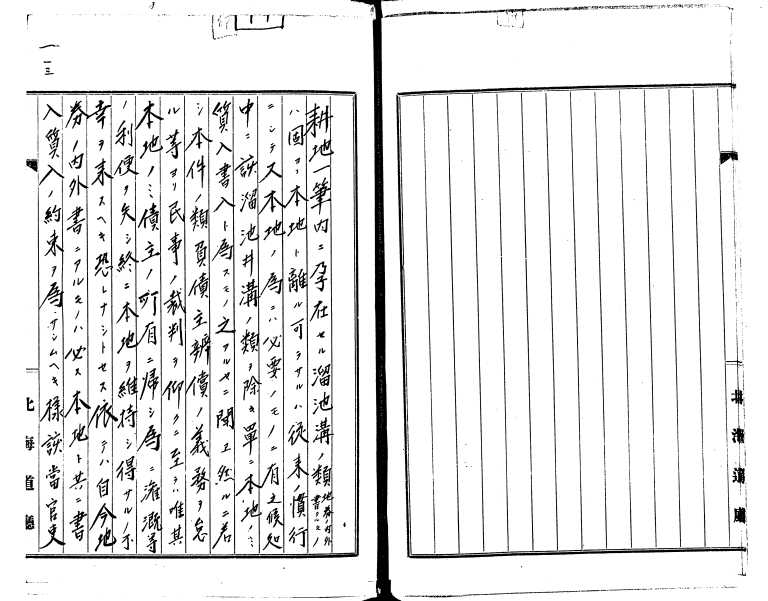 耕地一筆内ニ孕在セル溜池溝ノ類地券ノ内外書アルモノ
ハ固ヨリ本地ト離ル可ラサルハ従来ノ慣行
ニシテ又本地ノ為ニハ必要ノモノニ有之候処
中ニ該溜池井溝ノ類ヲ除キ単ニ本地ノミ
質入書入ト為スモノ之アルヤニ聞ヱ然ルニ若
シ本件ノ類負債主辨償ノ義務ヲ怠
ル等ヨリ民事ノ裁判ヲ仰クニ至ラハ唯其
本地ノミ債主ノ所有ニ帰シ為ニ潅漑等
ノ利便ヲ失シ終ニ本地ヲ維持シ得サルノ不
幸ヲ来スヘキ恐レナシトセス依テハ自今地
券ノ内外書ニアルモノハ必ス本地ト共ニ書
入質入ノ約束ヲ為サシムヘキ様該当官吏
北海道廳
一一三
北海道廳